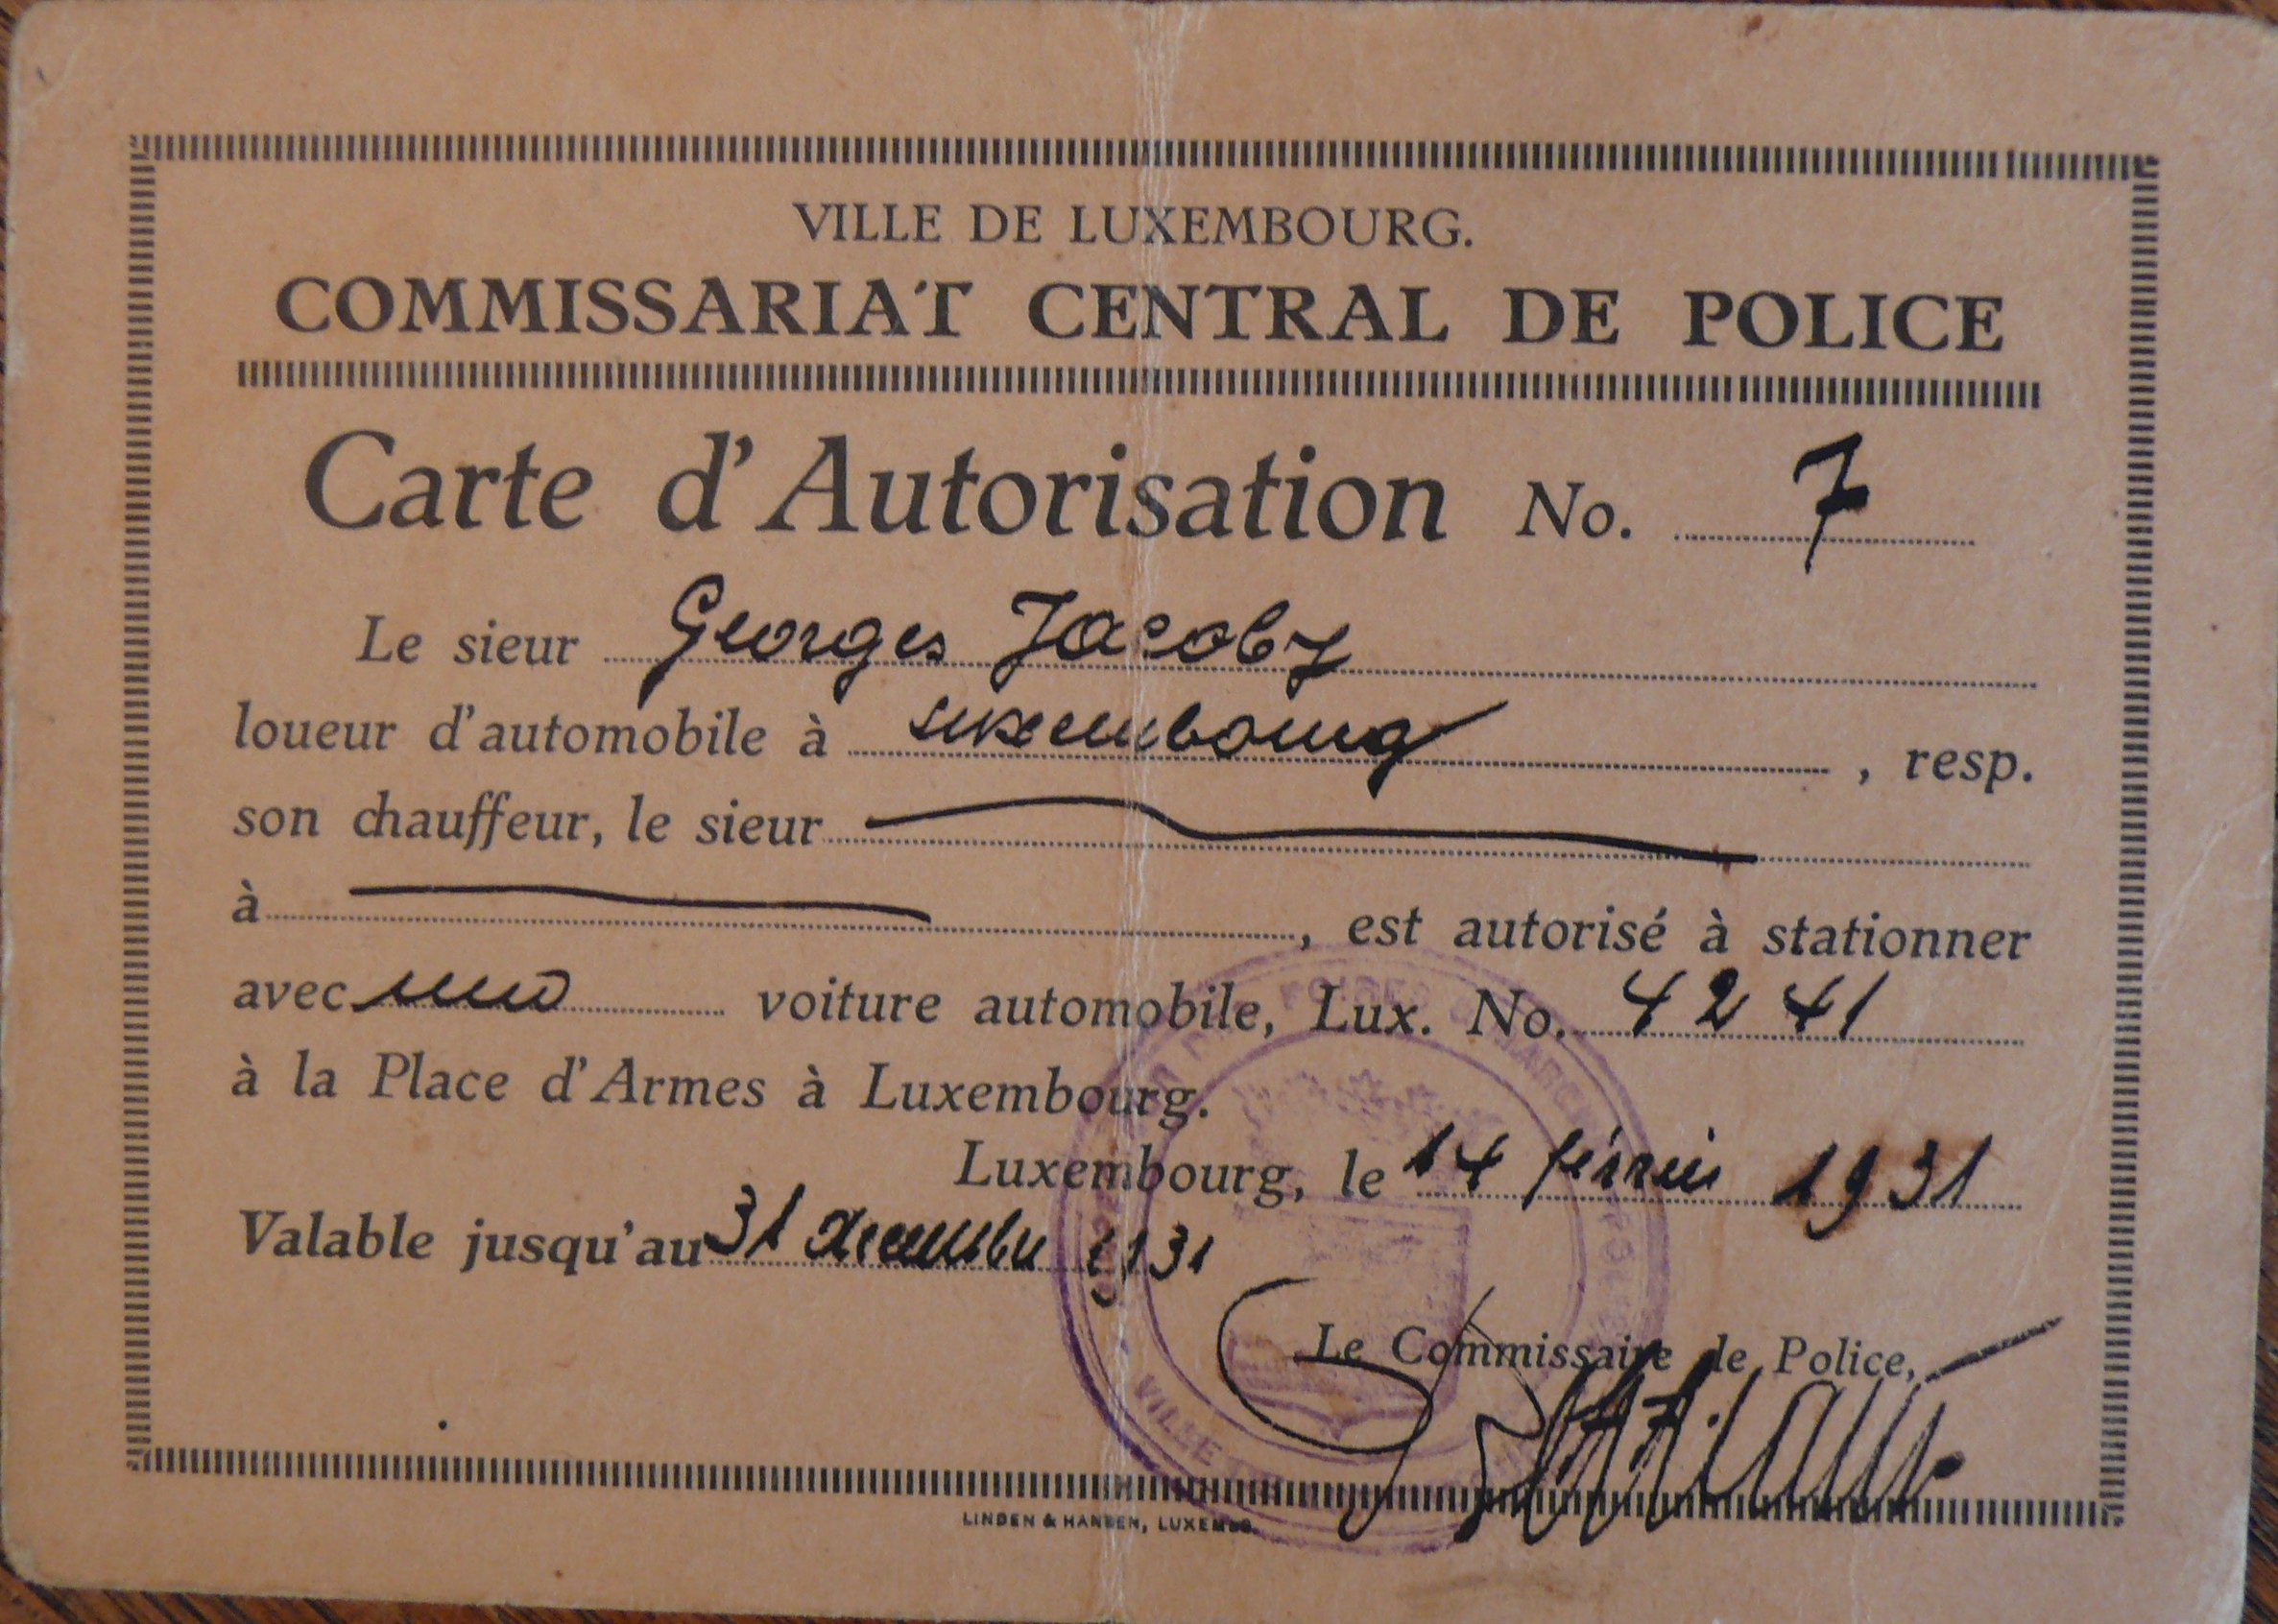 VILLE DE LUXEMBOURG.
COMMISSARIAT CENTRAL DE POLICE
Carte d'Autorisation No. 7
Le sieur Georges Jacoby
loueur d'automobile à Luxembourg, resp.
son chauffeur, le sieur
à, est autorisé à stationner
avec une voiture automobile, Lux. No. 4241
à la Place d'Armes à Luxembourg.
Luxembourg, le 14 février 1931
Valable jusqu'au 31 decembre 1931
Le Commissaire de Police,
VILLE
LINDEN & HANSEN, LUXEMBG.